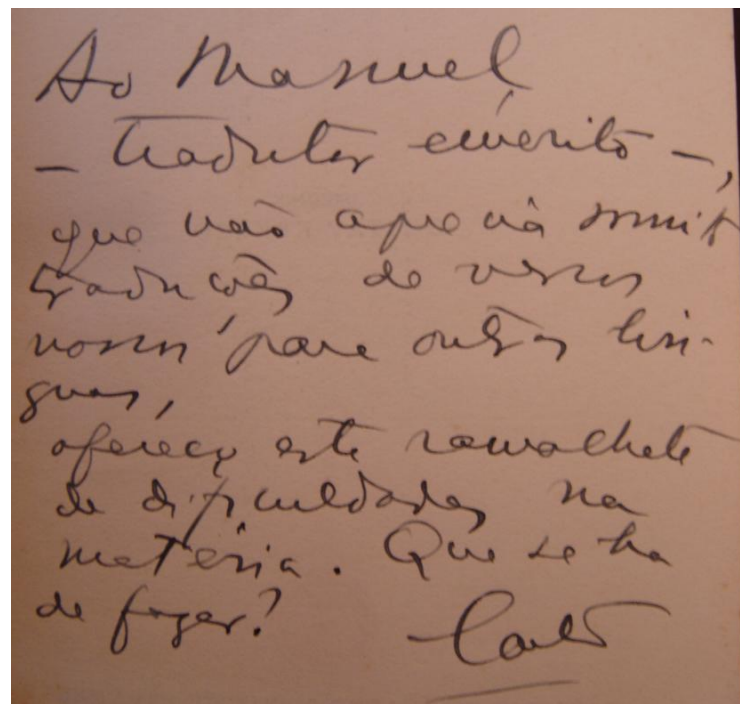 Ao Manuel
– tradutor emérito –,
que não aprecia muito
traduções de versos
nossos para outras lín-
guas,
ofereço este ramalhete
de dificuldades na
matéria. Que se ha
de fazer?